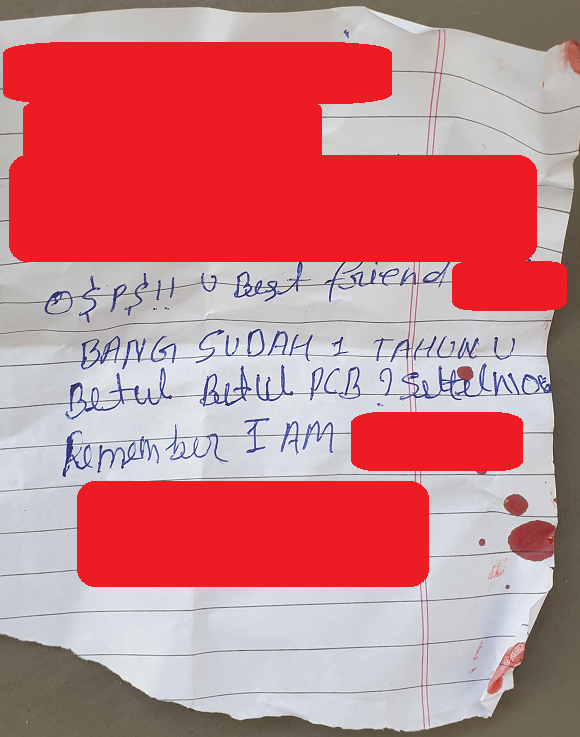 O$P$!! U Best friend
BANG SUDAH 1 TAHUN U
Betul Betul PCB ? Settel
Remember I AM